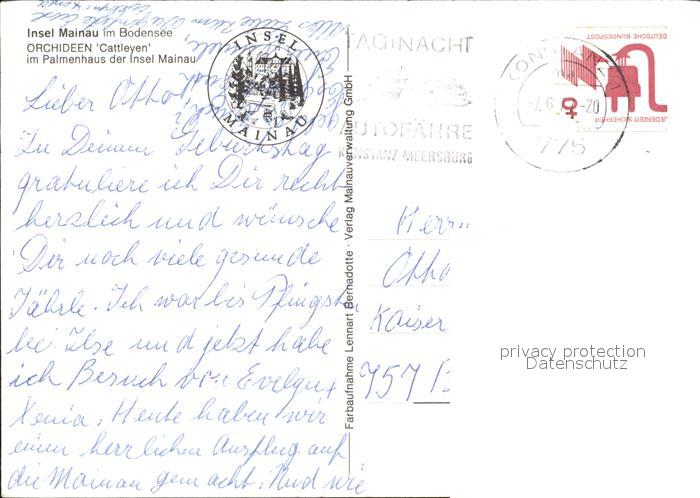 Insel Mainau im Bodensee
ORCHIDEEN 'Cattleyen'
im Palmenhaus der Insel Mainau
INSEL
MAINAU
TAG+NACHT
AUTOFÄHRE
KONSTANZ-MEERSBURG
775
DEUTSCHE BUNDESPOST
JEDERZEIT SICHERHEIT
Lieber Otto!
Zu Deinem Geburtstag
gratuliere ich Dir recht
herzlich und wünsche
Dir noch viele gesunde
Jährle. Ich war bis Pfingsten
bei Ilse und jetzt habe
ich Besuch von Evelyn +
Xenia. Heute haben wir
einen herrlichen Ausflug auf
die Mainau gemacht. Und wie
Farbaufnahme Lennart Bernadotte · Verlag Mainauverwaltung GmbH
Herrn
Otto
Kaiser
757 B
privacy protection
Datenschutz